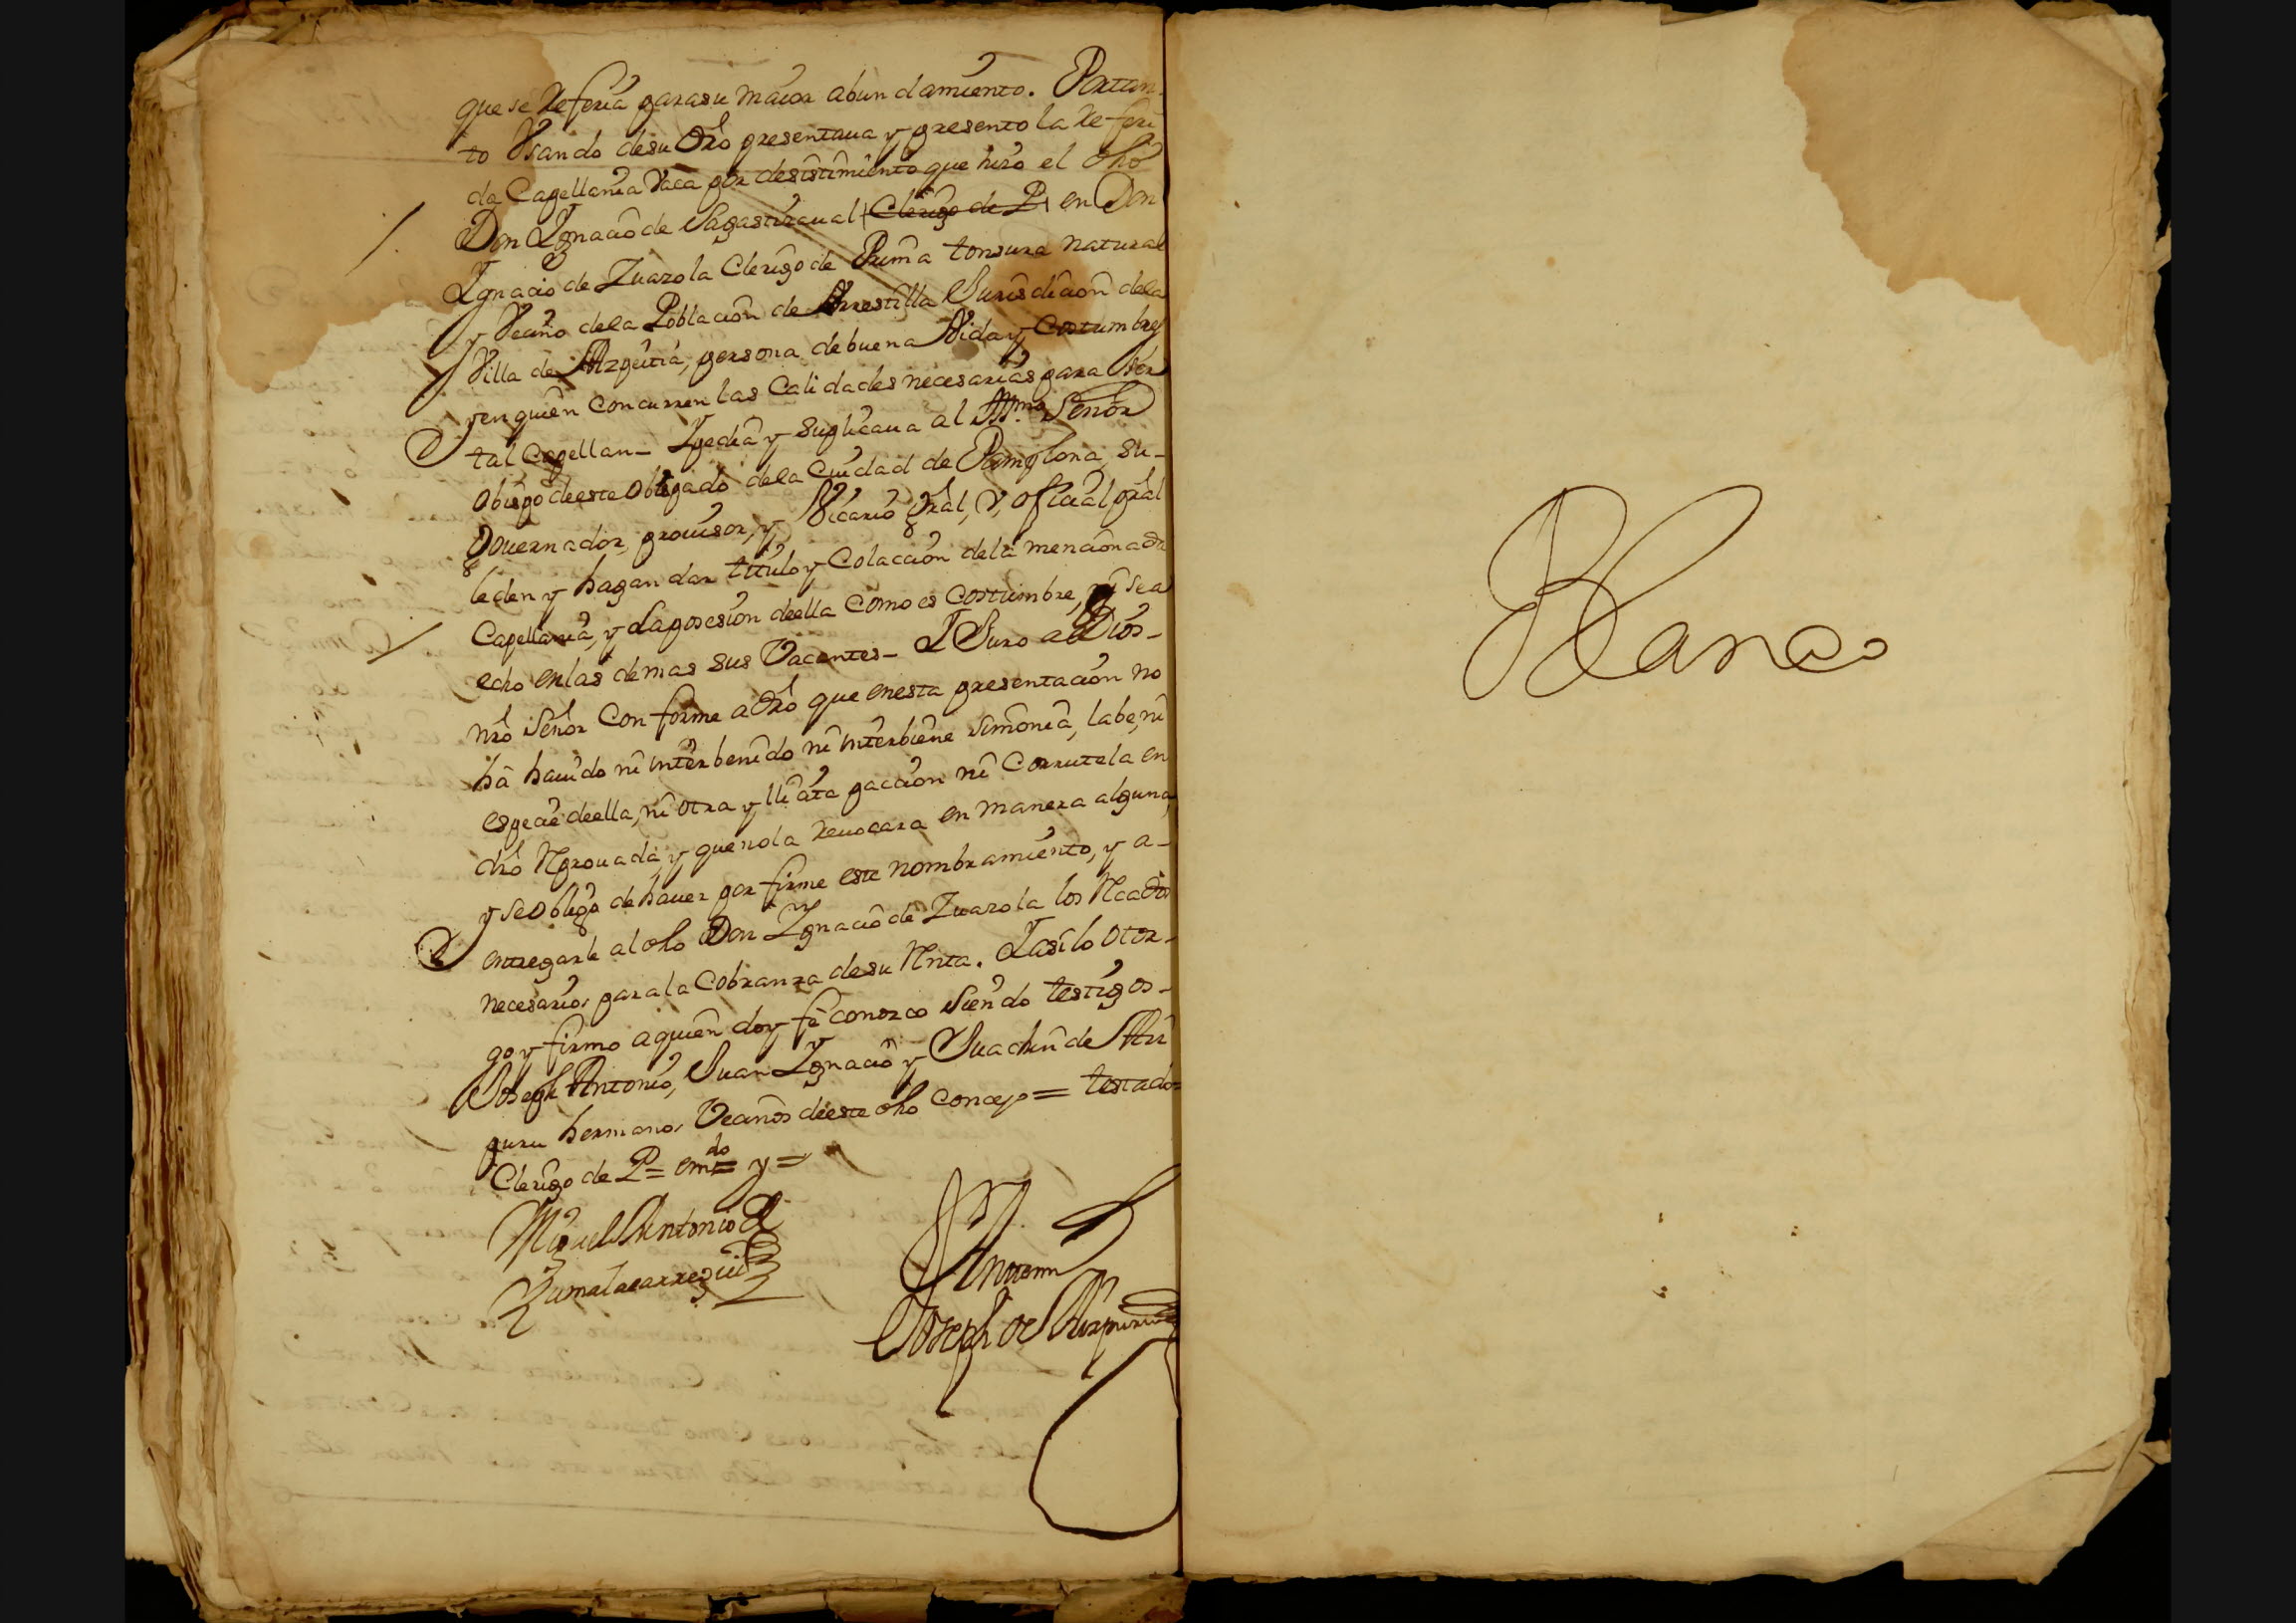 que se Referia para su maior abundamiento. Portan-
to Vsando de su dro presentaua y presento la Referi
da Capellania Vaca por desistimiento que hizo el dho
Don Ygnacio de Sagastizaual Clerigo de P en Don
Ygnacio de Zuazola Clerigo de Prima tonsura natural
y Vecino de la Poblacion de Arrestilla Jurisdicion de la
Villa de Azpeitia, persona de buena Vida y Costumbres
y en quien concurren las Calidades necesarias para ser
tal Capellan - Y pedia y suplicaua al Yllmo Señor
Obispo de este Obispado de la Ciudad de Pamplona, su-
Gouernador, prouisor, y Vicario gral, y, oficial pral
le den y hagan dar titulo y Colaccion de la mencionada
Capellania, y la posesion de ella como es costumbre, y se a
echo en las demas sus Vacantes - Y Juro a Dios -
nro Señor Conforme a dro que en esta presentacion no
ha hauido ni interbenido ni interbiene simonia, labe, ni
especie de ella, ni otra yllicita paccion ni Corrutela en
dro Reprouada, y que no la reuocara en manera alguna,
y se obligo de hauer por firme este nombramiento, y a -
entregarle al dho Don Ygnacio de Zuazola los Recados
necesarios para la Cobranza de su Renta. Y asi lo otor-
go y firmo a quien doy fe conozco siendo testigos -
Joseph Antonio, Juan Ygnacio y Juachin de Aiz
puru hermanos Vecinos de este dho concejo = testado =
Clerigo de P = emdo = y =
Miguel Antonio de
Zumalacarregui
Ante mi
Joseph de Aizpuru
Blanco